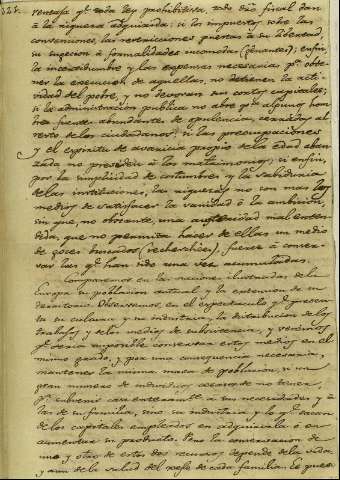 328.
ventaja qe toda ley prohibitiva, todo dro fiscal dan
à la riqueza adquirida; si los impuestos sobre las
convenciones, las restricciones puestas à su libertad,
su sugecion à formalidades incomodas (genantes); en fin,
la incertidumbre y los expensas necesarias pa obte-
ner la execucion de aquellas, no detienen la acti-
vidad del pobre, y no devoran sus cortos capitales;
si la administracion publica no abre pa algunos hom-
bres fuentes abundantes de opulencia, cerradas al
resto de los ciudadanos; si las preocupaciones
y el espíritu de avaricia propio de la edad aban-
zada no presiden à los matrimonios; si enfin,
por la simplicidad de costumbres y la sabiduria
de las instituciones, las riquezas no son mas los
medios de satisfacer la vanidad ò la ambicion,
sin que, no obstante, una austeridad mal enten-
dida, que no permita hacer de ellas un medio
de goces buscados (recherchées), fuerce à conser-
var las qe han sido una vez acumuladas.
Comparemos en las naciones ilustradas de la
Europa su poblacion actual y la extension de su
territorio. Observemos, en el espectáculo qe presen-
ta su cultura y su industria, la distribucion de los
trabajos y de los medios de subsistencia, y veremos
qe seria imposible conservar estos medios en el
mismo grado, y por una consequencia necesaria,
mantener la misma masa de poblacion, si un
gran numero de individuos cesase de no tener,
pa subvenir casi enteramente à sus necesidades y à
las de su familia, sino su industria y lo qe sacan
de los capitales empleados en adquirirla ò en
aumentar su producto. Pero la conservacion de
uno y otro de estos dos recursos depende de la vida
y aun de la salud del xefe de cada familia. Es pues